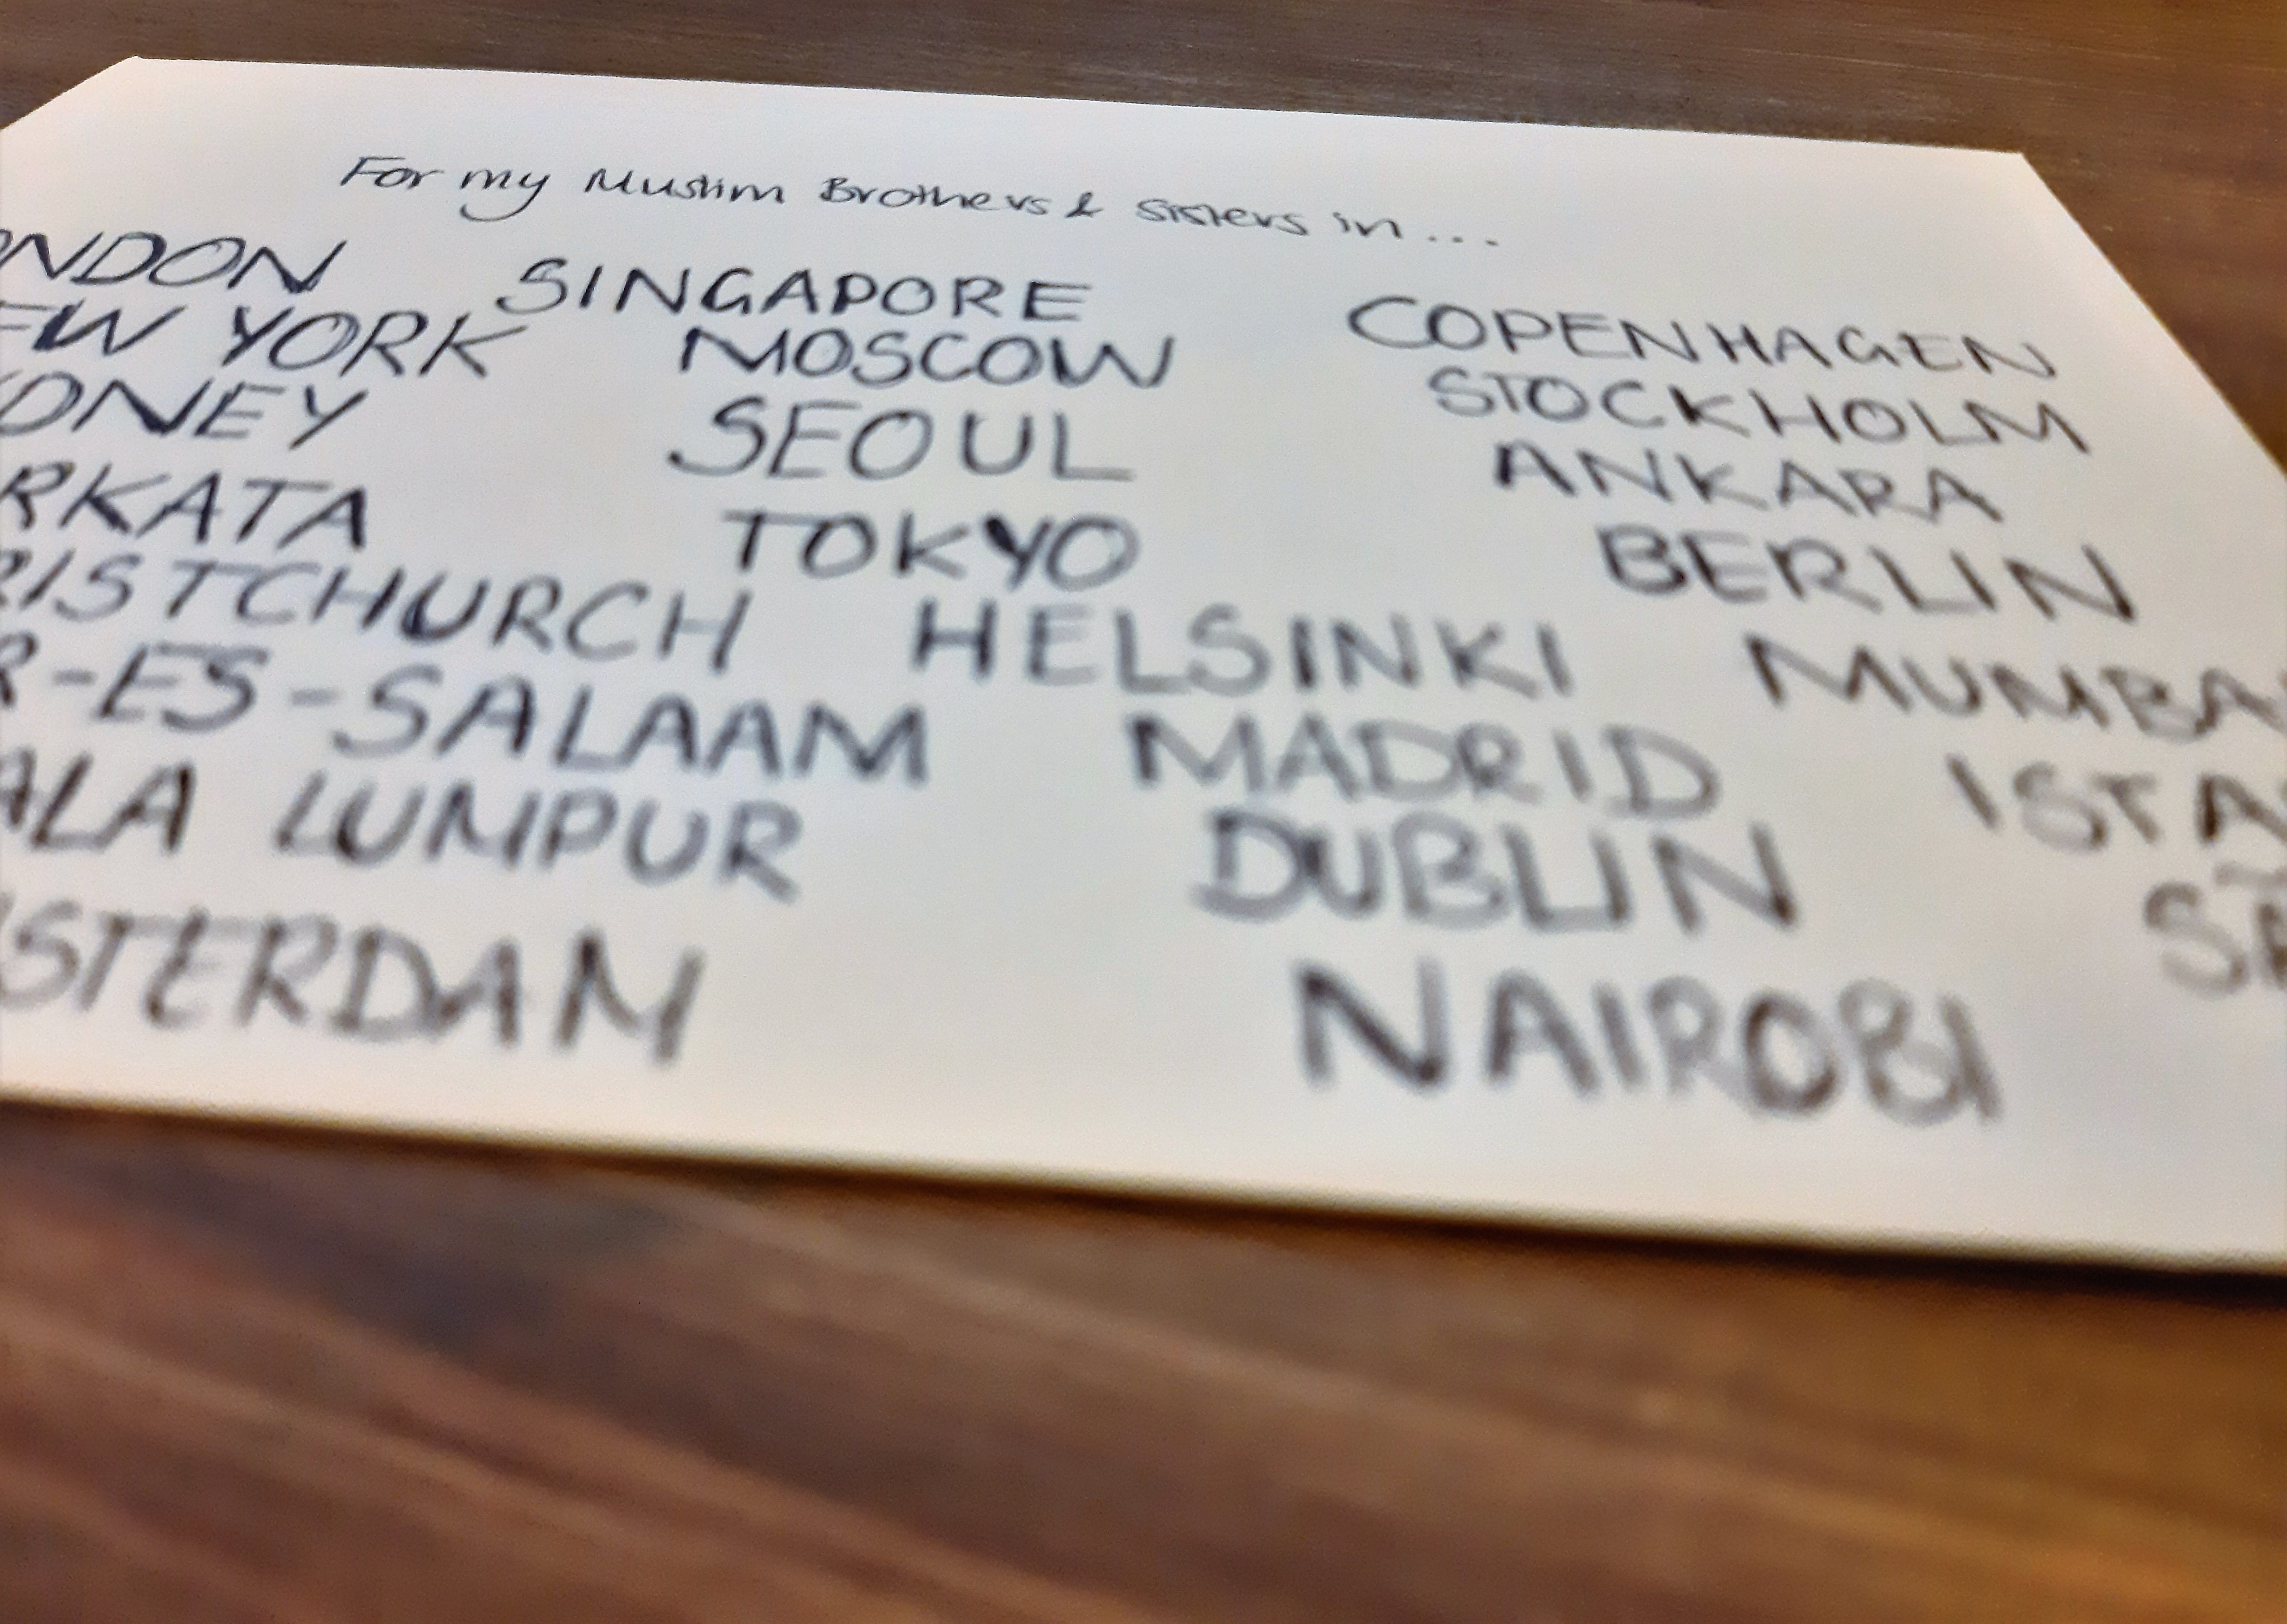 For my Muslim Brothers & Sisters in...
ONDON SINGAPORE COPENHAGEN
EW YORK MOSCOW STOCKHOLM
DNEY SEOUL ANKARA
RKATA TOKYO BERLIN
RISTCHURCH HELSINKI MUMBA
R-ES-SALAAM MADRID ISTA
ALA LUMPUR DUBLIN
STERDAM NAIROBI